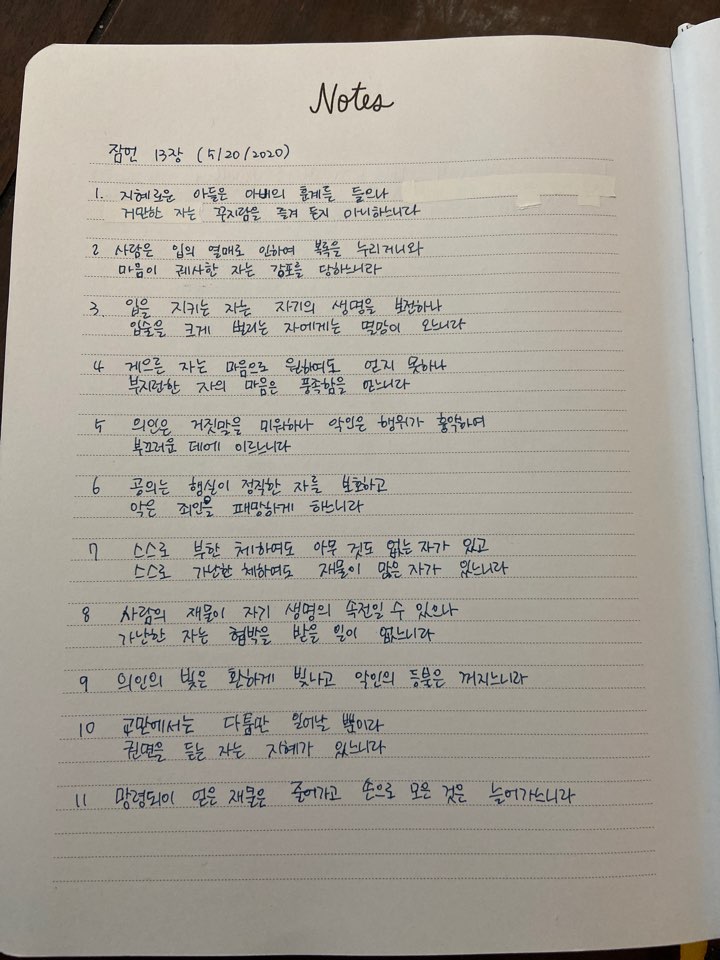 Notes
잠언 13장 (5/20/2020)
1. 지혜로운 아들은 아비의 훈계를 들으나
거만한 자는 꾸지람을 즐겨 듣지 아니하느니라
2 사람은 입의 열매로 인하여 복록을 누리거니와
마음이 궤사한 자는 강포를 당하느니라
3. 입을 지키는 자는 자기의 생명을 보전하나
입술을 크게 벌리는 자에게는 멸망이 오느니라
4 게으른 자는 마음으로 원하여도 얻지 못하나
부지런한 자의 마음은 풍족함을 얻느니라
5 의인은 거짓말을 미워하나 악인은 행위가 흉악하여
부끄러운 데에 이르느니라
6 공의는 행실이 정직한 자를 보호하고
악은 죄인을 패망하게 하느니라
7 스스로 부한 체하여도 아무 것도 없는 자가 있고
스스로 가난한 체하여도 재물이 많은 자가 있느니라
8 사람의 재물이 자기 생명의 속전일 수 있으나
가난한 자는 협박을 받을 일이 없느니라
9 의인의 빛은 환하게 빛나고 악인의 등불은 꺼지느니라
10 교만에서는 다툼만 일어날 뿐이라
권면을 듣는 자는 지혜가 있느니라
11 망령되이 얻은 재물은 줄어가고 손으로 모은 것은 늘어가느니라